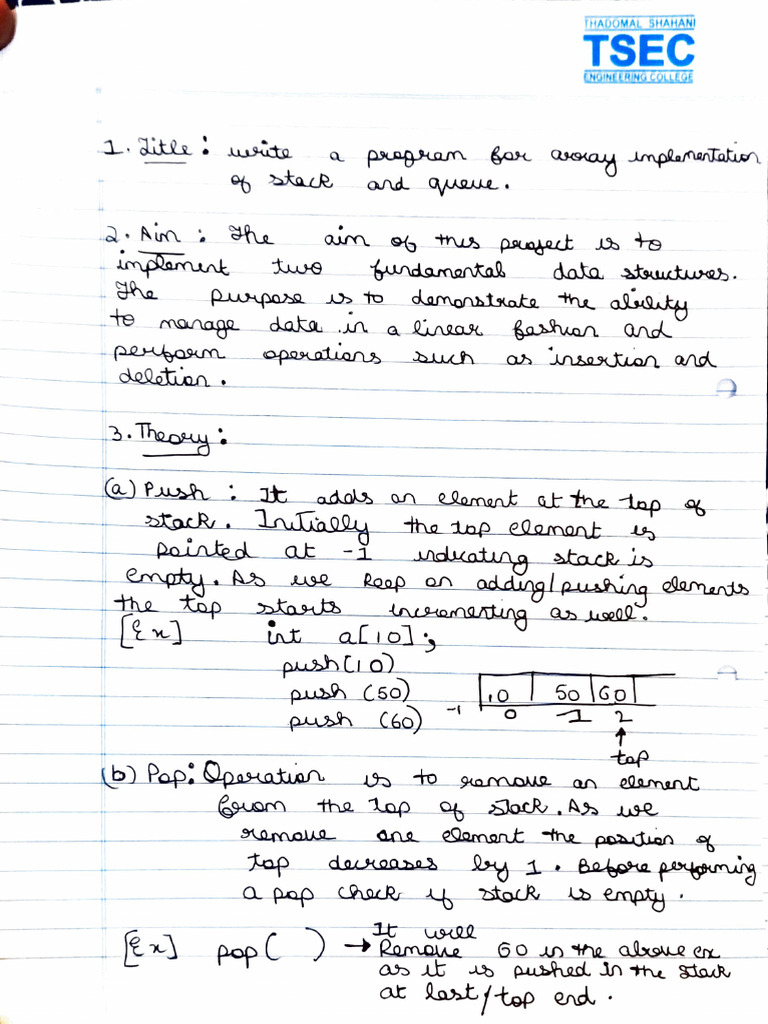 THADOMAL SHAHANI
TSEC
ENGINEERING COLLEGE
1. Title : write a program for array implementation
of stack and queue.
2. Aim : The aim of this project is to
implement two fundamental data structures.
The purpose is to demonstrate the ability
to manage data in a linear fashion and
perform operations such as insertion and
deletion.
3. Theory :
(a) Push : It adds an element at the top of
stack. Initially the top element is
pointed at -1 indicating stack is
empty. As we keep on adding/pushing elements
the top starts incrementing as well.
[Ex] int a[10];
push(10)
push (50)
push (60)
-1 10 50 60
0 1 2
top
(b) Pop: Operation is to remove an element
from the top of stack. As we
remove one element the position of
top decreases by 1. Before performing
a pop check if stack is empty.
[Ex] pop( ) → It will
Remove 60 in the above ex
as it is pushed in the stack
at last/top end.